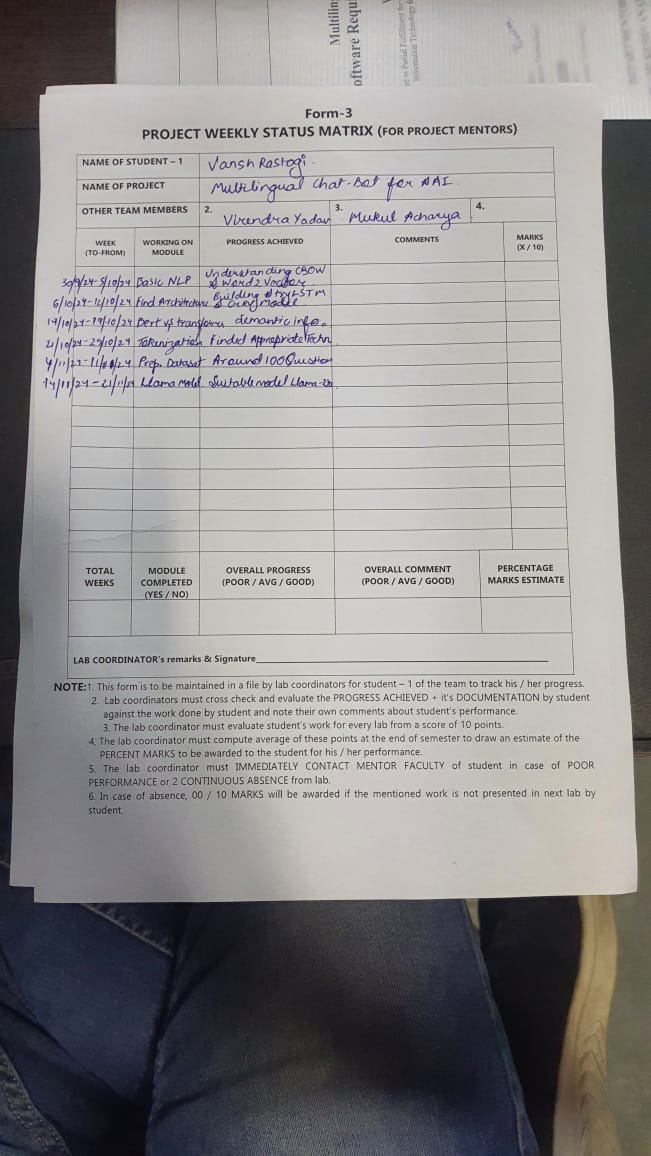 Multilin
oftware Requ
ed in Partial Fulfillment for
Information Technology
Form-3
PROJECT WEEKLY STATUS MATRIX (FOR PROJECT MENTORS)
NAME OF STUDENT – 1 Vansh Rastogi.
NAME OF PROJECT Multilingual Chat-Bot for AAI.
OTHER TEAM MEMBERS 2. Virendra Yadav 3. Mukul Acharya 4.
WEEK (TO-FROM) WORKING ON MODULE PROGRESS ACHIEVED COMMENTS MARKS (X / 10)
30/9/24-5/10/24 Basic NLP Understanding CBOW & Word2Vec
6/10/24-12/10/24 Find Architecture Building & try LSTM & Model
14/10/24-19/10/24 Bert vs transformer info.
21/10/24-25/10/24 Tokenization Finded Appropriate
Prep. Dataset Around 100 Question
14/11/24-21/11/24 Llama Suitable model Llama-
TOTAL WEEKS MODULE COMPLETED (YES / NO) OVERALL PROGRESS (POOR / AVG / GOOD) OVERALL COMMENT (POOR / AVG / GOOD) PERCENTAGE MARKS ESTIMATE
LAB COORDINATOR's remarks & Signature
NOTE:1. This form is to be maintained in a file by lab coordinators for student – 1 of the team to track his / her progress.
2. Lab coordinators must cross check and evaluate the PROGRESS ACHIEVED + it's DOCUMENTATION by student
against the work done by student and note their own comments about student's performance.
3. The lab coordinator must evaluate student's work for every lab from a score of 10 points.
4. The lab coordinator must compute average of these points at the end of semester to draw an estimate of the
PERCENT MARKS to be awarded to the student for his / her performance.
5. The lab coordinator must IMMEDIATELY CONTACT MENTOR FACULTY of student in case of POOR
PERFORMANCE or 2 CONTINUOUS ABSENCE from lab.
6. In case of absence, 00 / 10 MARKS will be awarded if the mentioned work is not presented in next lab by
student.